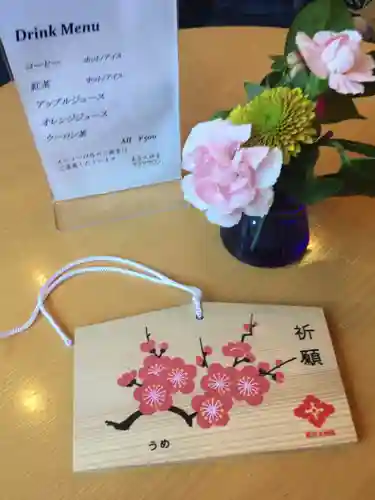 Drink Menu
コーヒー ホット/アイス
紅茶 ホット/アイス
アップルジュース
オレンジジュース
ウーロン茶
All ¥500
祈願
うめ